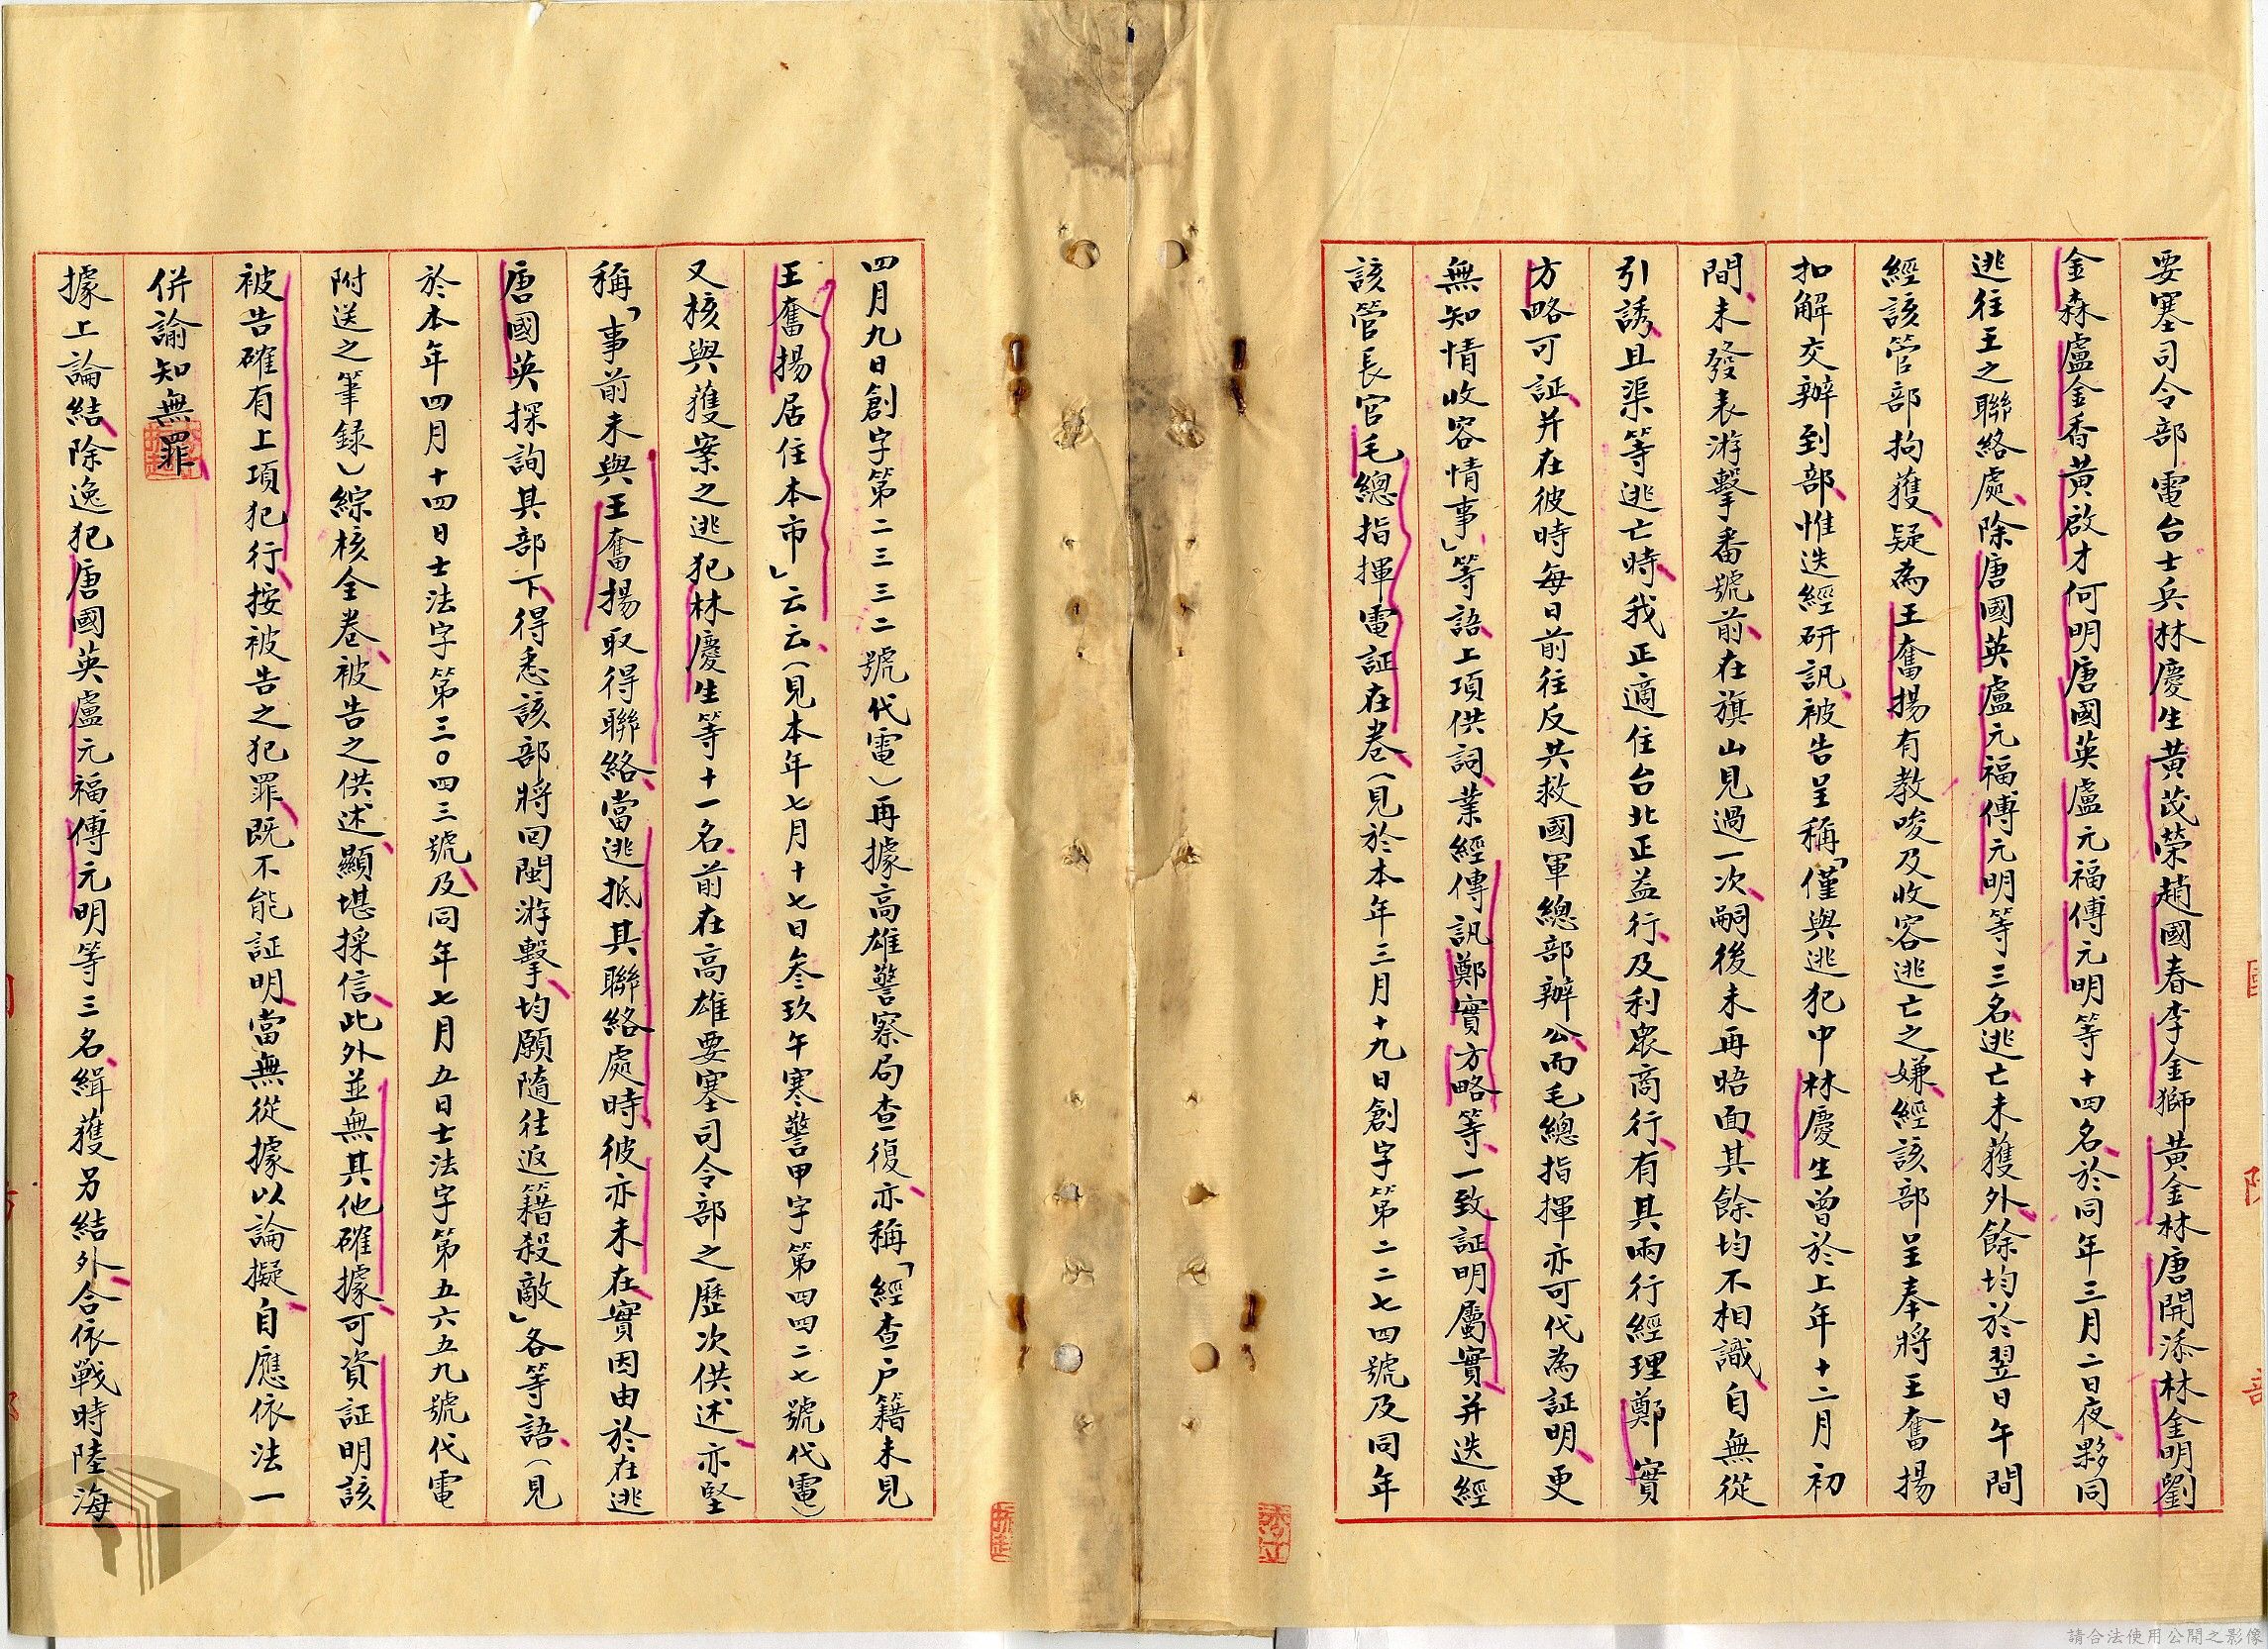 要塞司令部電台士兵林慶生黃茂榮趙國春李金獅黃金林唐開添林金明劉
金森盧金香黃啟才何明唐國英盧元福傅元明等十四名於同年三月二日夜夥同
逃往王之聯絡處除唐國英盧元福傅元明等三名逃亡未獲外餘均於翌日午間
經該管部拘獲疑為王奮揚有教唆及收容逃亡之嫌經該部呈奉將王奮揚
扣解交辦到部惟迭經研訊被告呈稱「僅與逃犯中林慶生曾於上年十二月初
間未發表游擊番號前在旗山見過一次嗣後未再晤面其餘均不相識自無從
引誘且渠等逃亡時我正適住台北正益行及利眾商行有其兩行經理鄭實
方略可証并在彼時每日前往反共救國軍總部辦公而毛總指揮亦可代為証明更
無知情收容情事」等語上項供詞業經傳訊鄭實方略等一致証明屬實并迭經
該管長官毛總指揮電証在卷(見於本年三月十九日創字第二二七四號及同年
四月九日創字第二三三二號代電)再據高雄警察局查復亦稱「經查户籍未見
王奮揚居住本市」云云(見本年七月十七日叁玖午寒警甲字第四四二七號代電)
又核與獲案之逃犯林慶生等十一名前在高雄要塞司令部之歷次供述亦堅
稱「事前未與王奮揚取得聯絡當逃抵其聯絡處時彼亦未在實因由於在逃
唐國英探詢其部下得悉該部將回閩游擊均願隨往返籍殺敵」各等語(見
於本年四月十四日士法字第三〇四三號及同年七月五日士法字第五六五九號代電
附送之筆録)綜核全卷被告之供述顯堪採信此外並無其他確據可資証明該
被告確有上項犯行按被告之犯罪既不能証明當無從據以論擬自應依法一
併諭知無罪
據上論結除逸犯唐國英盧元福傅元明等三名緝獲另結外合依戰時陸海
請合法使用公開之影像